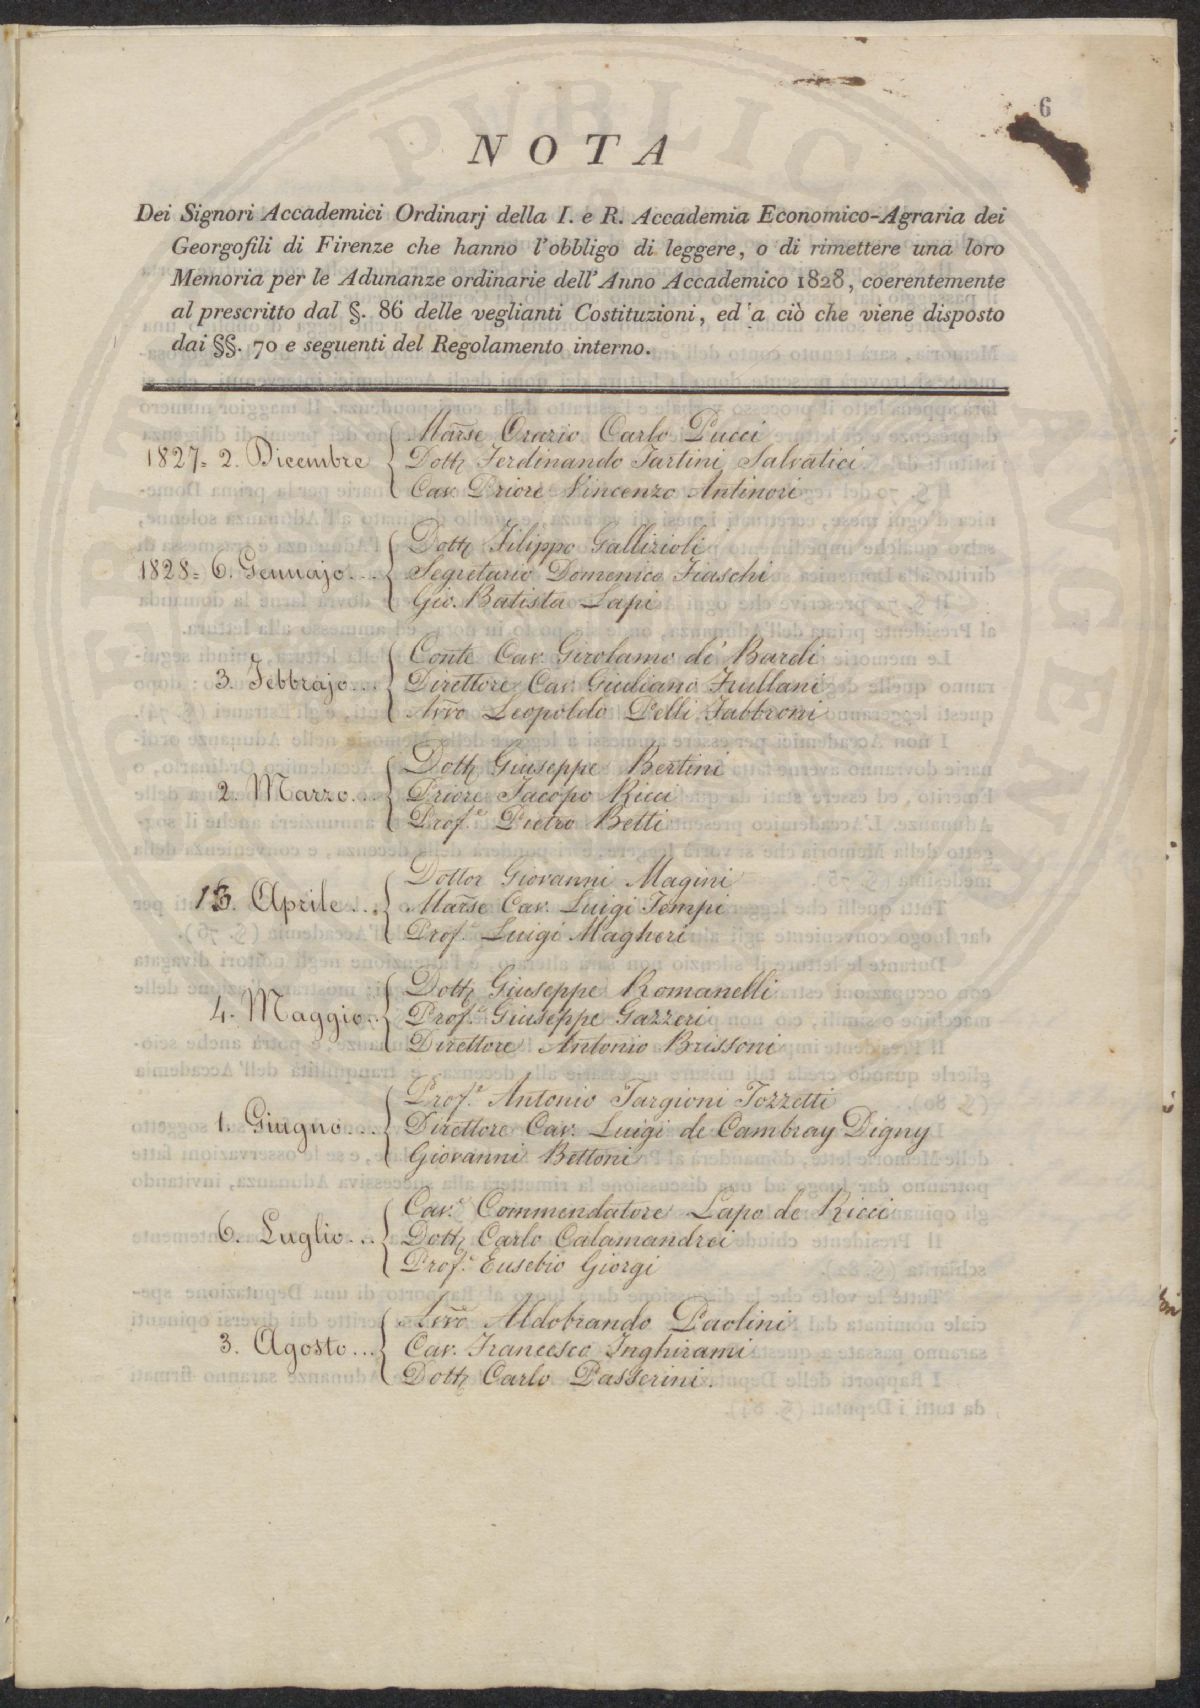 6
NOTA
Dei Signori Accademici Ordinarj della I. e R. Accademia Economico-Agraria dei
Georgofili di Firenze che hanno l'obbligo di leggere, o di rimettere una loro
Memoria per le Adunanze ordinarie dell'Anno Accademico 1828, coerentemente
al prescritto dal §. 86 delle veglianti Costituzioni, ed a ciò che viene disposto
dai §§. 70 e seguenti del Regolamento interno.
Marse Orazio Carlo Pucci
1827 = 2. Dicembre Dott. Ferdinando Tartini Salvatici
Cav. Priore Vincenzo Antinori
Dott. Filippo Gallizioli
1828 = 6. Gennajo... Segretario Domenico Fiaschi
Gio. Batista Lapi
Conte Cav. Girolamo de' Bardi
3. Febbrajo... Direttore Cav. Giuliano Frullani
Avvo Leopoldo Pelli Fabbroni
Dott. Giuseppe Bertini
2. Marzo... Priore Jacopo Ricci
Prof.e Pietro Betti
Dottor Giovanni Magini
13. Aprile... Marse Cav. Luigi Tempi
Prof.e Luigi Magheri
Dott. Giuseppe Romanelli
4. Maggio.. Prof.e Giuseppe Gazzeri
Direttore Antonio Brissoni
Prof.e Antonio Targioni Tozzetti
1. Giugno... Direttore Cav. Luigi de Cambray Digny
Giovanni Bettoni
Cav.e Commendatore Lapo de Ricci
6. Luglio... Dott. Carlo Calamandrei
Prof.e Eusebio Giorgi
Avvo Aldobrando Paolini
3. Agosto... Cav. Francesco Inghirami
Dott. Carlo Passerini.